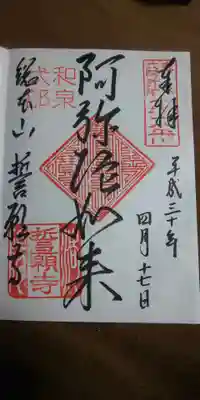 奉拝
平成三十年
四月十七日
阿弥陀如来
和泉
式部
総本山 誓願寺
誓願寺